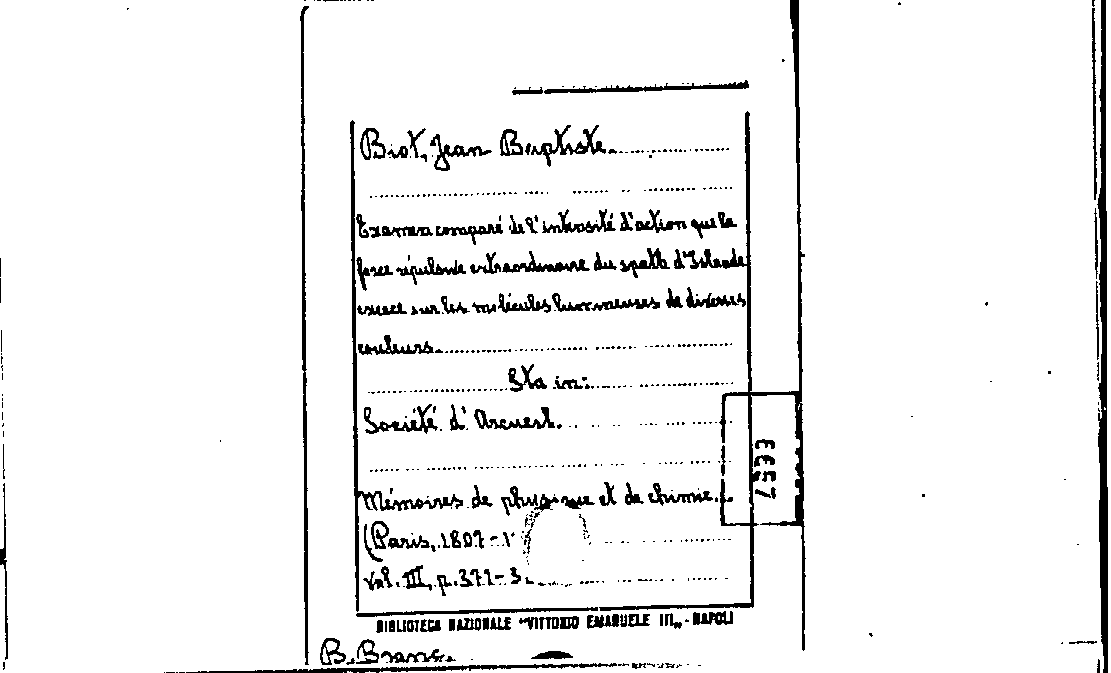 Biot, Jean Baptiste.
Examen comparé de l'intensité d'action que la
force répulsive extraordinaire du spath d'Islande
exerce sur les molécules lumineuses de diverses
couleurs.
Sta in:
Société d'Arcueil.
Mémoires de physique et de chimie.
(Paris, 1807-1
vol. III, p. 371-3
BIBLIOTECA NAZIONALE "VITTORIO EMANUELE III„ - NAPOLI
B.